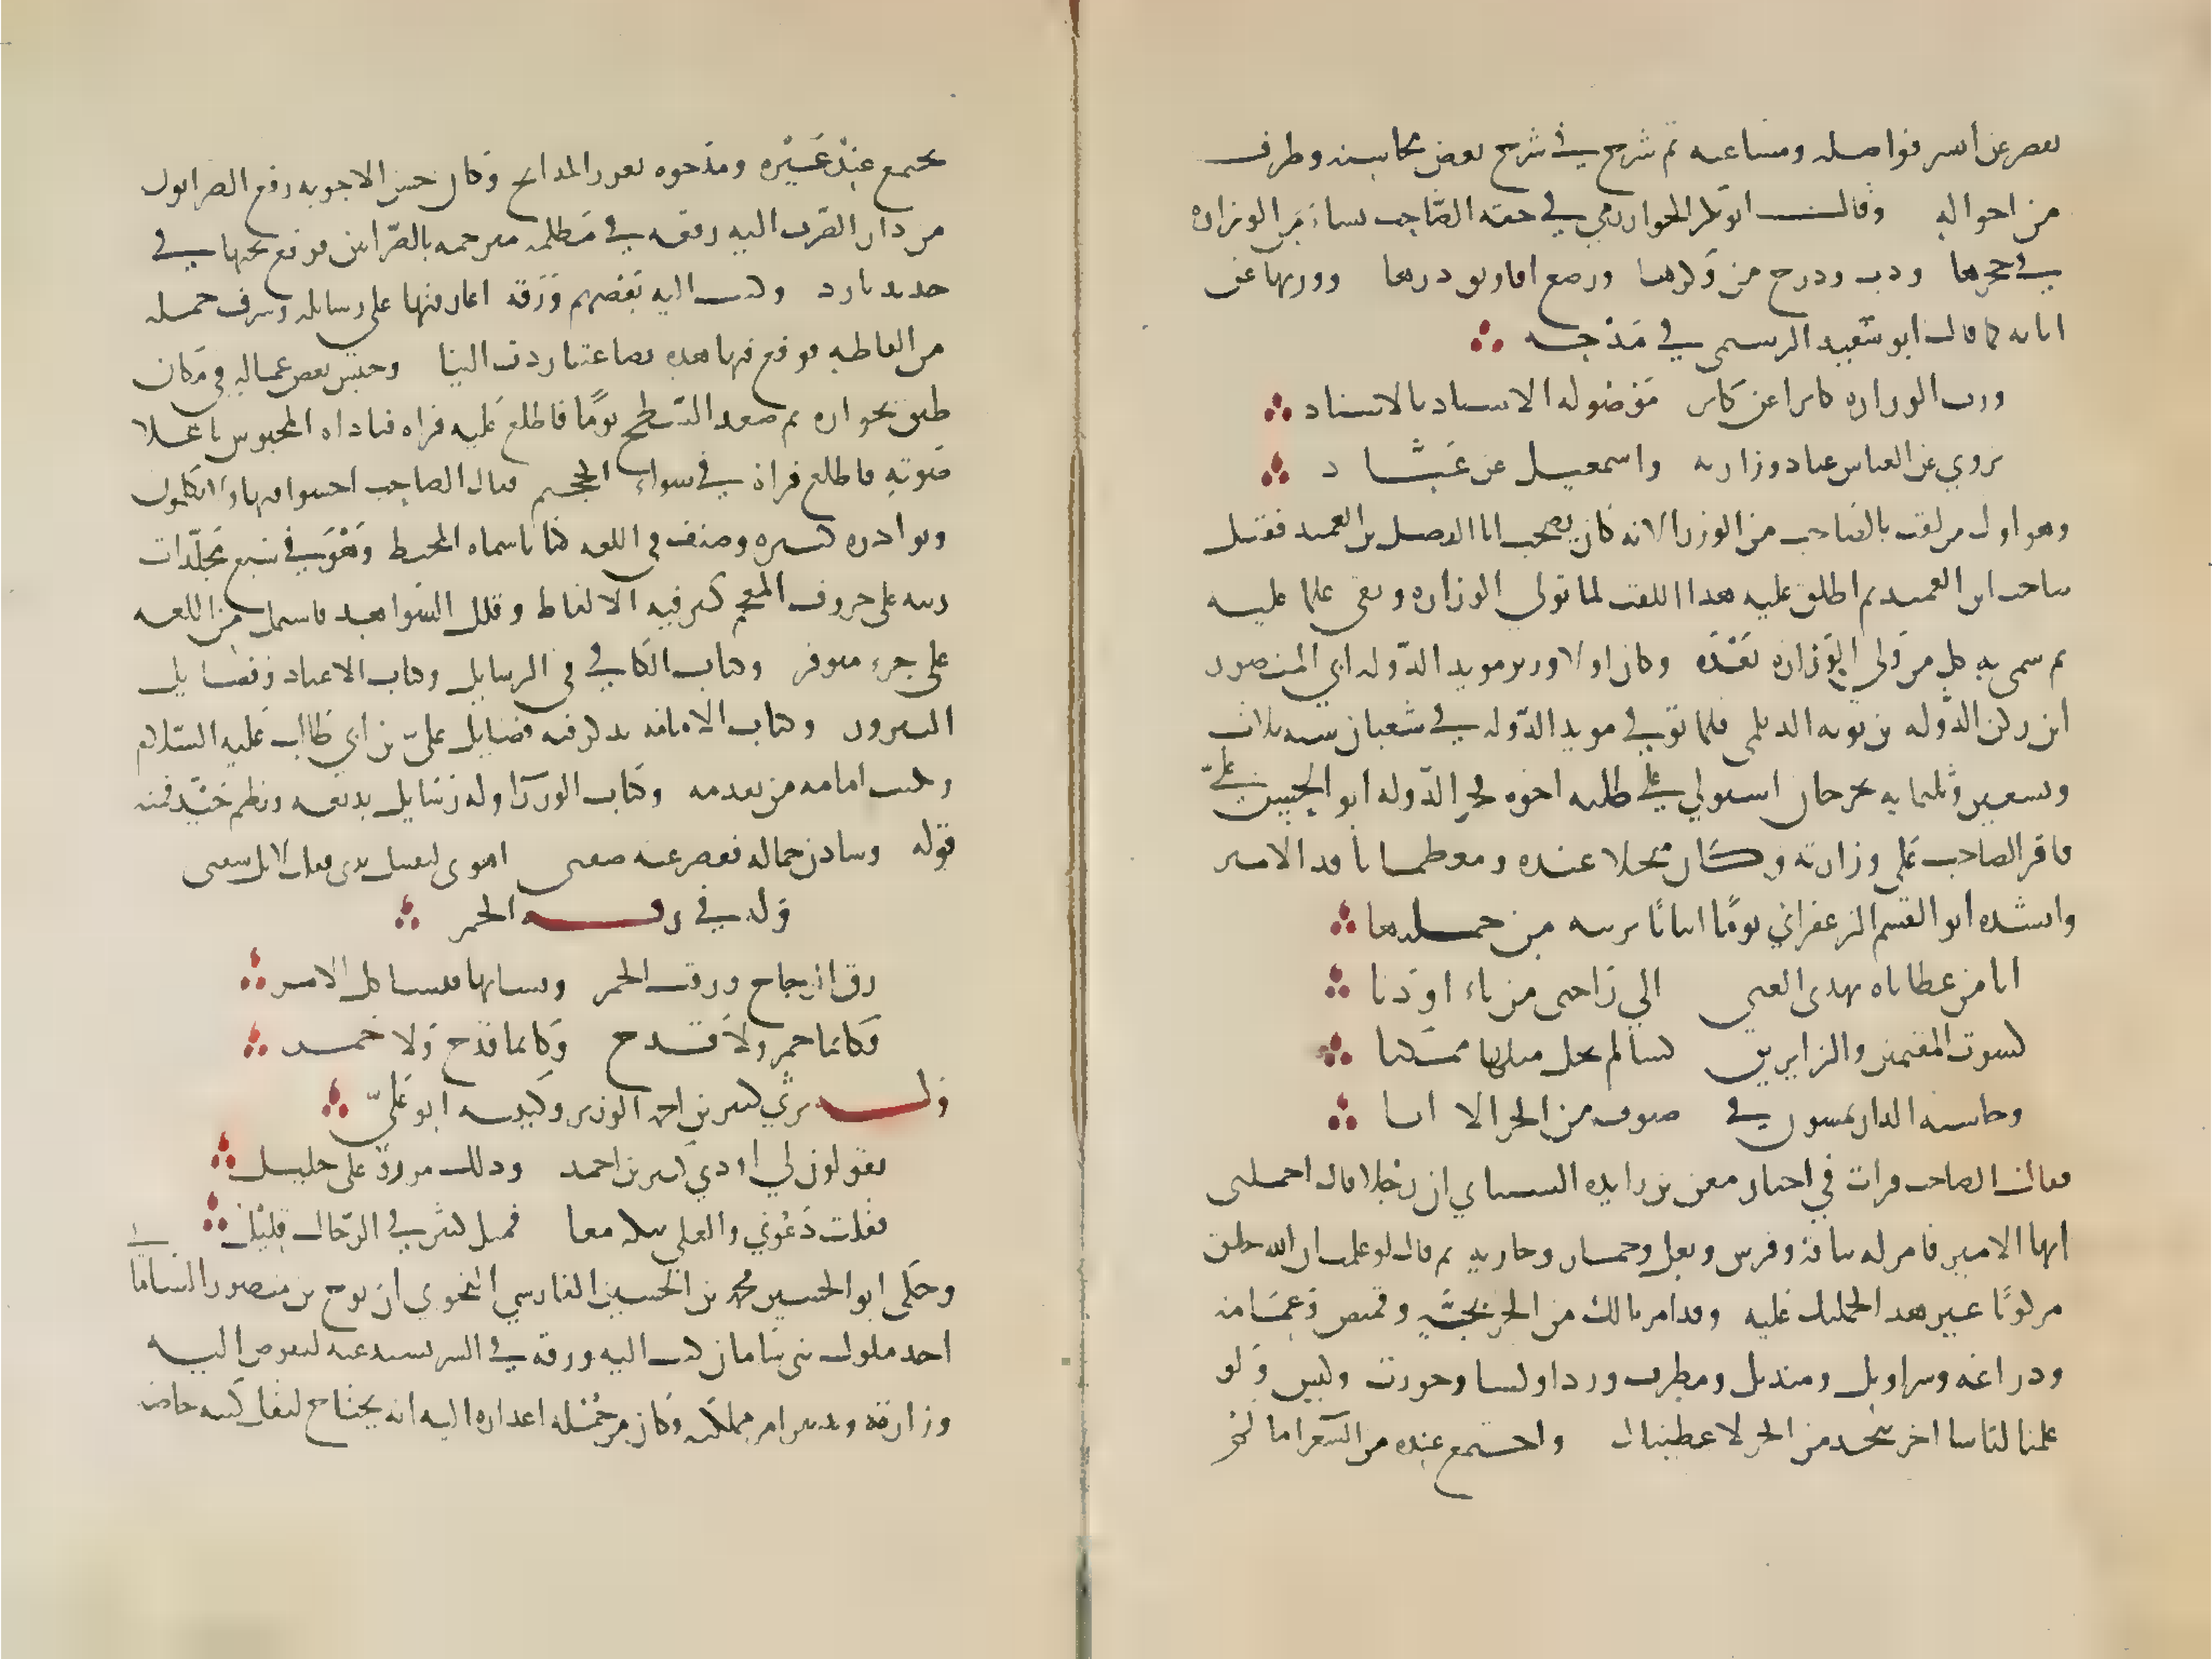 يعصر عن ايسر فواضله ومساعيه ثم شرع في شرح بعض محاسنه وطرف
من احواله وقال ابو بكر الخوارزمي في حقه الصاحب نشا من الوزاره
في حجرها ودب ودرج من وكرها ورضع افاويق درها وورثها عن
ابايه كما قال ابو سعيد الرستمي في مدحه
ورث الوزاره كابرا عن كابر موصوله الاسناد بالاسناد
يروي عن العباس عباد وزارته واسمعيل عن عباد
وهو اول من لقب بالصاحب من الوزرا لانه كان يصحب ابا الفضل بن العميد فقيل
صاحب ابن العميد ثم اطلق عليه هذا اللقب لما تولي الوزاره وبقي علما عليه
ثم سمي به كل من ولي الوزاره بعده وكان اولا وزير مويد الدوله ابي المنصور
ابن ركن الدوله بن بويه الديلمي فلما توفي مويد الدوله في شعبان سنه ثلاث
وسبعين وثلثمايه بجرجان استولي علي مملكته اخوه فخر الدوله ابو الحسن علي
فاقر الصاحب علي وزارته وكان مبجلا عنده ومعظما نافد الامر
وانشده ابو القسم الزعفراني يوما ابياتا نونيه من جملتها
ايا من عطاياه تهدي الغني الي راحتي من ناء او دنا
كسوت المقيمين والزايرين كسا لم يخل مثلها ممكنا
وحاشيه الدار يمشون في صنوف من الخز الا انا
فقال الصاحب قرات في اخبار معن بن زايده الشيباني ان رجلا قال احملني
ايها الامير فامر له بناقه وفرس وبغل وحمار وجاريه ثم قال لو علمت ان الله خلق
مركوبا غير هذا لحملتك عليه وقد امرنا لك من الخز بجبه وقميص وعمامه
ودراعه وسراويل ومنديل ومطرف وردا وكسا وجورب وكيس ولو
علمنا لباسا اخر يتخد من الخز لاعطيناك واجتمع عنده من الشعرا ما لم
يجتمع عند غيره ومدحوه بغرر المدايح وكان حسن الاجوبه رفع الضرابون
من دار الضرب اليه رقعه في مظلمه مترجمه بالضرابين فوقع تحتها في
حديد بارد وكتب اليه بعضهم ورقه اغار فيها علي رسايله وسرق جمله
من الفاظه فوقع فيها هده بضاعتنا ردت الينا وحبس بعض عماله في مكان
ضيق بجواره ثم صعد السطح يوما فاطلع عليه فراه فناداه المحبوس باعلا
صوته فاطلع فراه في سواء الجحيم فقال الصاحب اخسوا فيها ولا تكلمون
ونوادره كثيره وصنف في اللغه كتابا سماه المحيط وهو في سبع مجلدات
رتبه علي حروف المعجم كثر فيه الالفاظ وقلل الشواهد فاشتمل من اللغه
علي جزء متوفر وكتاب الكافي في الرسايل وكتاب الاعياد وفضايل
النيروز وكتاب الامامه يدكر فيه فضايل علي بن ابي طالب عليه السلام
وتثبت امامه من تقدمه وكتاب الوزرا وله رسايل بديعه ونظم جيد فمنه
قوله وشادن جماله تقصر عنه صفتي اهوي لتقبيل يدي فقلت لا بل شفتي
وله في رقه الخمر
رق الزجاج ورقت الخمر وتشابها فتشاكل الامر
فكانما خمر ولا قدح وكانما قدح ولا خمر
وله يرثي كثير بن احمد الوزير وكنيته ابو علي
يقولون لي اودي كثير بن احمد ودلك مرزو علي جليل
فقلت دعوني والعلي نبكه معا فمثل كثير في الرجال قليل
وحكي ابو الحسين محمد بن الحسين الفارسي النحوي ان نوح بن منصور الساماني
احد ملوك بني سامان كتب اليه ورقه في السر يستدعيه ليفوض اليه
وزارته وتدبير امر مملكته وكان من جمله اعداره اليه انه يحتاج لنقل كتبه خاصه